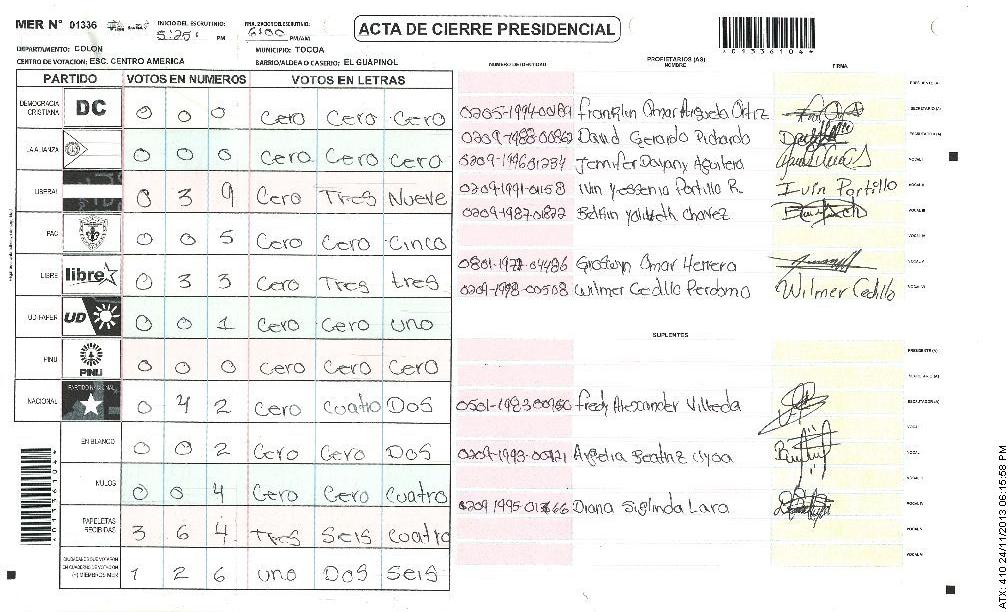 MER N° 01336
INICIO DEL ESCRUTINIO: 5:25 PM
FINALIZACION DEL ESCRUTINIO: 6:00 PM/AM
ACTA DE CIERRE PRESIDENCIAL
*01336104*
DEPARTAMENTO: COLON
MUNICIPIO: TOCOA
CENTRO DE VOTACION: ESC. CENTRO AMERICA
BARRIO/ALDEA O CASERIO: EL GUAPINOL
PARTIDO VOTOS EN NUMEROS VOTOS EN LETRAS
NUMERO DE IDENTIDAD PROPIETARIOS (AS) NOMBRE FIRMA
DEMOCRACIA CRISTIANA DC 0 0 0 Cero Cero Cero
LA ALIANZA 0 0 0 Cero Cero Cero
LIBERAL 0 3 9 Cero Tres Nueve
PAC 0 0 5 Cero Cero Cinco
LIBRE libre 0 3 3 Cero Tres tres
UD-FAPER UD 0 0 1 Cero Cero uno
PINU PINU 0 0 0 Cero Cero Cero
NACIONAL PARTIDO NACIONAL 0 4 2 Cero Cuatro Dos
EN BLANCO 0 0 2 Cero Cero Dos
NULOS 0 0 4 Cero Cero Cuatro
PAPELETAS RECIBIDAS 3 6 4 Tres Seis Cuatro
CIUDADANOS QUE VOTARON EN CUADERNO DE VOTACION (+) MIEMBROS MER 1 2 6 uno Dos Seis
PRESIDENTE (A)
SECRETARIO (A) Franklin Omar Ortiz
ESCRUTADOR (A) David Gerardo Pichardo
VOCAL I Jennifer Dayany Aguilera
VOCAL II 0209-1991-01158 Ivin Yessenia Portillo R. Ivin Portillo
VOCAL III 0209-1987-01822 chavez
VOCAL IV
VOCAL V Omar Herrera
VOCAL VI 0209-1998-00508 Wilmer Cedillo Perdomo Wilmer Cedillo
SUPLENTES
PRESIDENTE (A)
SECRETARIO (A)
ESCRUTADOR (A) Fredy Alexander Villeda
VOCAL I
VOCAL II Beatriz
VOCAL III
VOCAL IV Diana Siglinda Lara
VOCAL V
VOCAL VI
*01336104*
ATX: 410 24/11/2013 06:15:58 PM